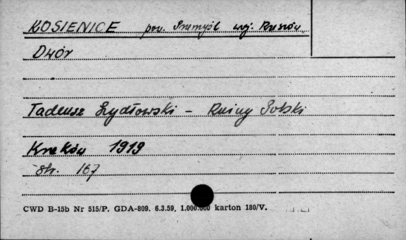 KOSIENICE pow. Przemyśl woj. Rzeszów
Dwór
Tadeusz Żydłowski - Ruiny Polski
Kraków 1919
str. 167
CWD B-15b Nr 515/P. GDA-809. 6.3.59. 1.000.000 karton 180/V.